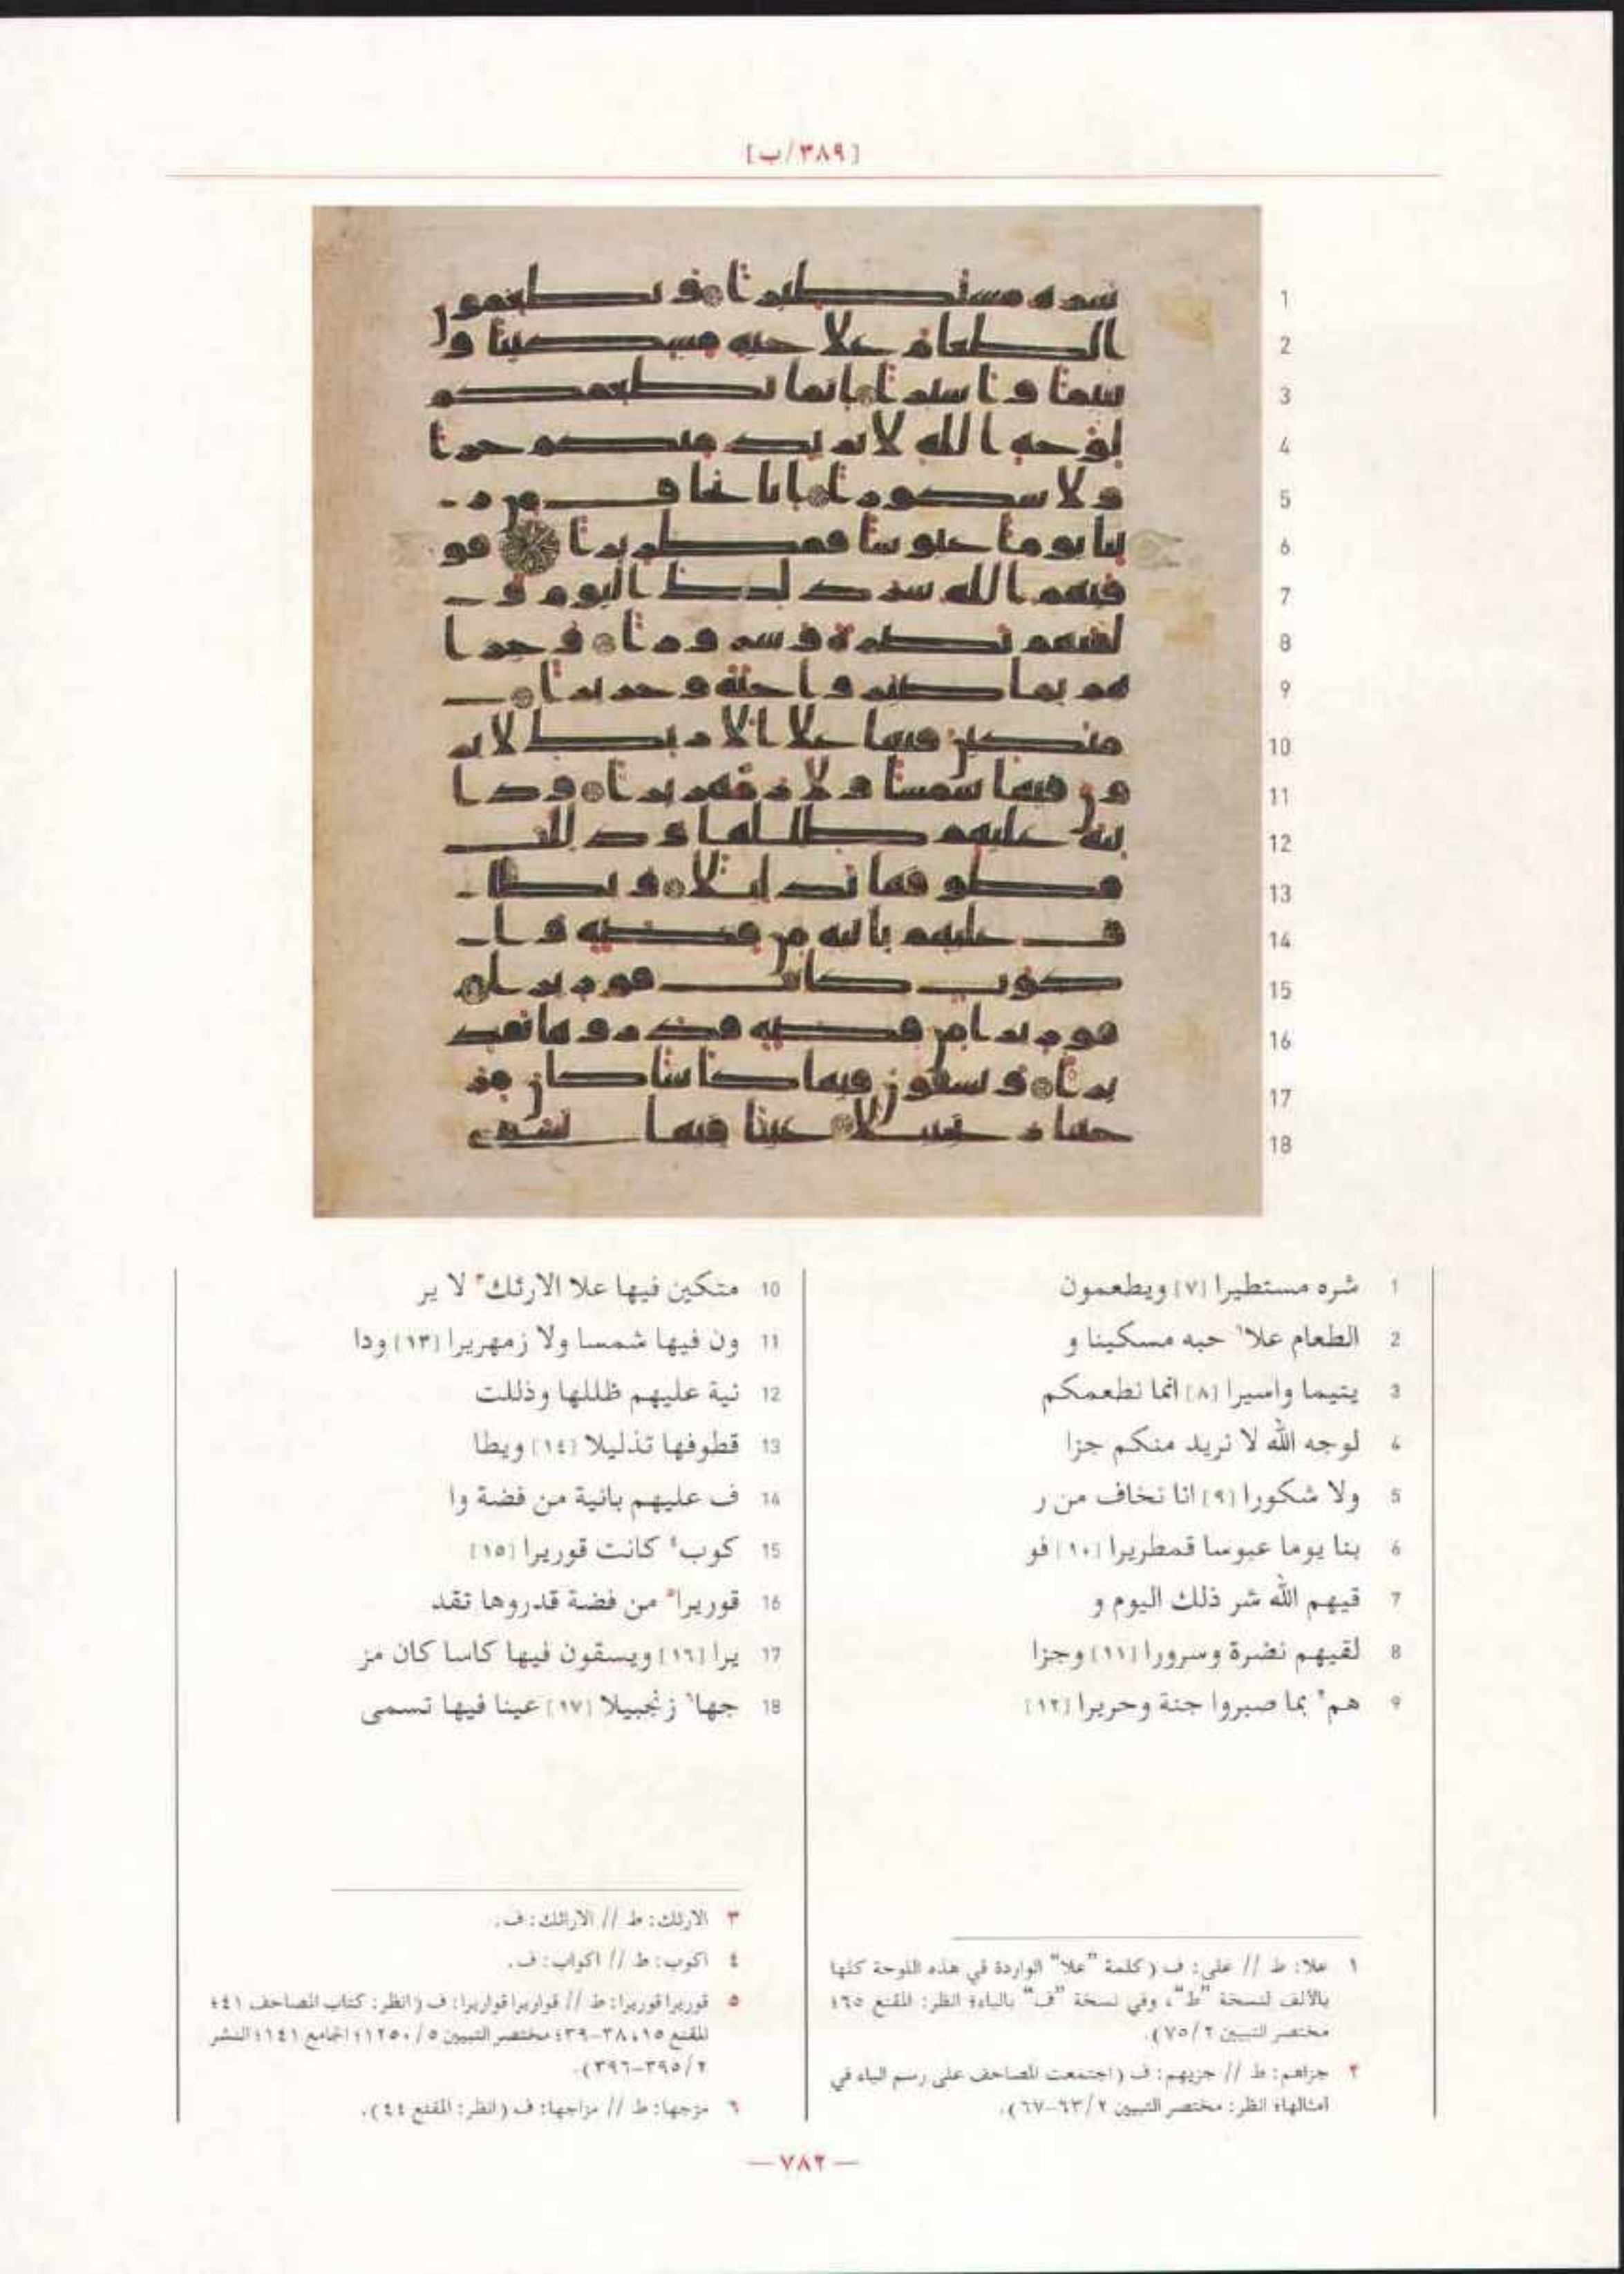 [٣٨٩/ب]
1 شره مستطيرا [٧] ويطعمون
2 الطعام علا١ حبه مسكينا و
3 يتيما واسيرا [٨] انما نطعمكم
4 لوجه الله لا نريد منكم جزا
5 ولا شكورا [٩] انا نخاف من ر
6 بنا يوما عبوسا قمطريرا [١٠] فو
7 قيهم الله شر ذلك اليوم و
8 لقيهم نضرة وسرورا [١١] وجزا
9 هم٢ بما صبروا جنة وحريرا [١٢]
10 متكين فيها علا الارئك٣ لا ير
11 ون فيها شمسا ولا زمهريرا [١٣] ودا
12 نية عليهم ظللها وذللت
13 قطوفها تذليلا [١٤] ويطا
14 ف عليهم بانية من فضة وا
15 كوب٤ كانت قوريرا [١٥]
16 قوريرا٥ من فضة قدروها تقد
17 يرا [١٦] ويسقون فيها كاسا كان مز
18 جها٦ زنجبيلا [١٧] عينا فيها تسمى
١ علا: ط // على: ف (كلمة "علا" الواردة في هذه اللوحة كلها
بالألف لنسخة "ط"، وفي نسخة "ف" بالياء؛ انظر: المقنع ٦٥؛
مختصر التبيين ٧٥/٢).
٢ جزاهم: ط // جزيهم: ف (اجتمعت المصاحف على رسم الياء في
امثالها؛ انظر: مختصر التبيين ٦٣/٢-٦٧).
٣ الارئك: ط // الارائك: ف.
٤ اكوب: ط // اكواب: ف.
٥ قوريرا قوريرا: ط // قواريرا قواريرا: ف (انظر: كتاب المصاحف ٤١؛
المقنع ١٥، ٣٨-٣٩؛ مختصر التبيين ١٢٥٠/٥؛ الجامع ١٤١؛ النشر
٣٩٥/٢-٣٩٦).
٦ مزجها: ط // مزاجها: ف (انظر: المقنع ٤٤).
— ٧٨٢ —